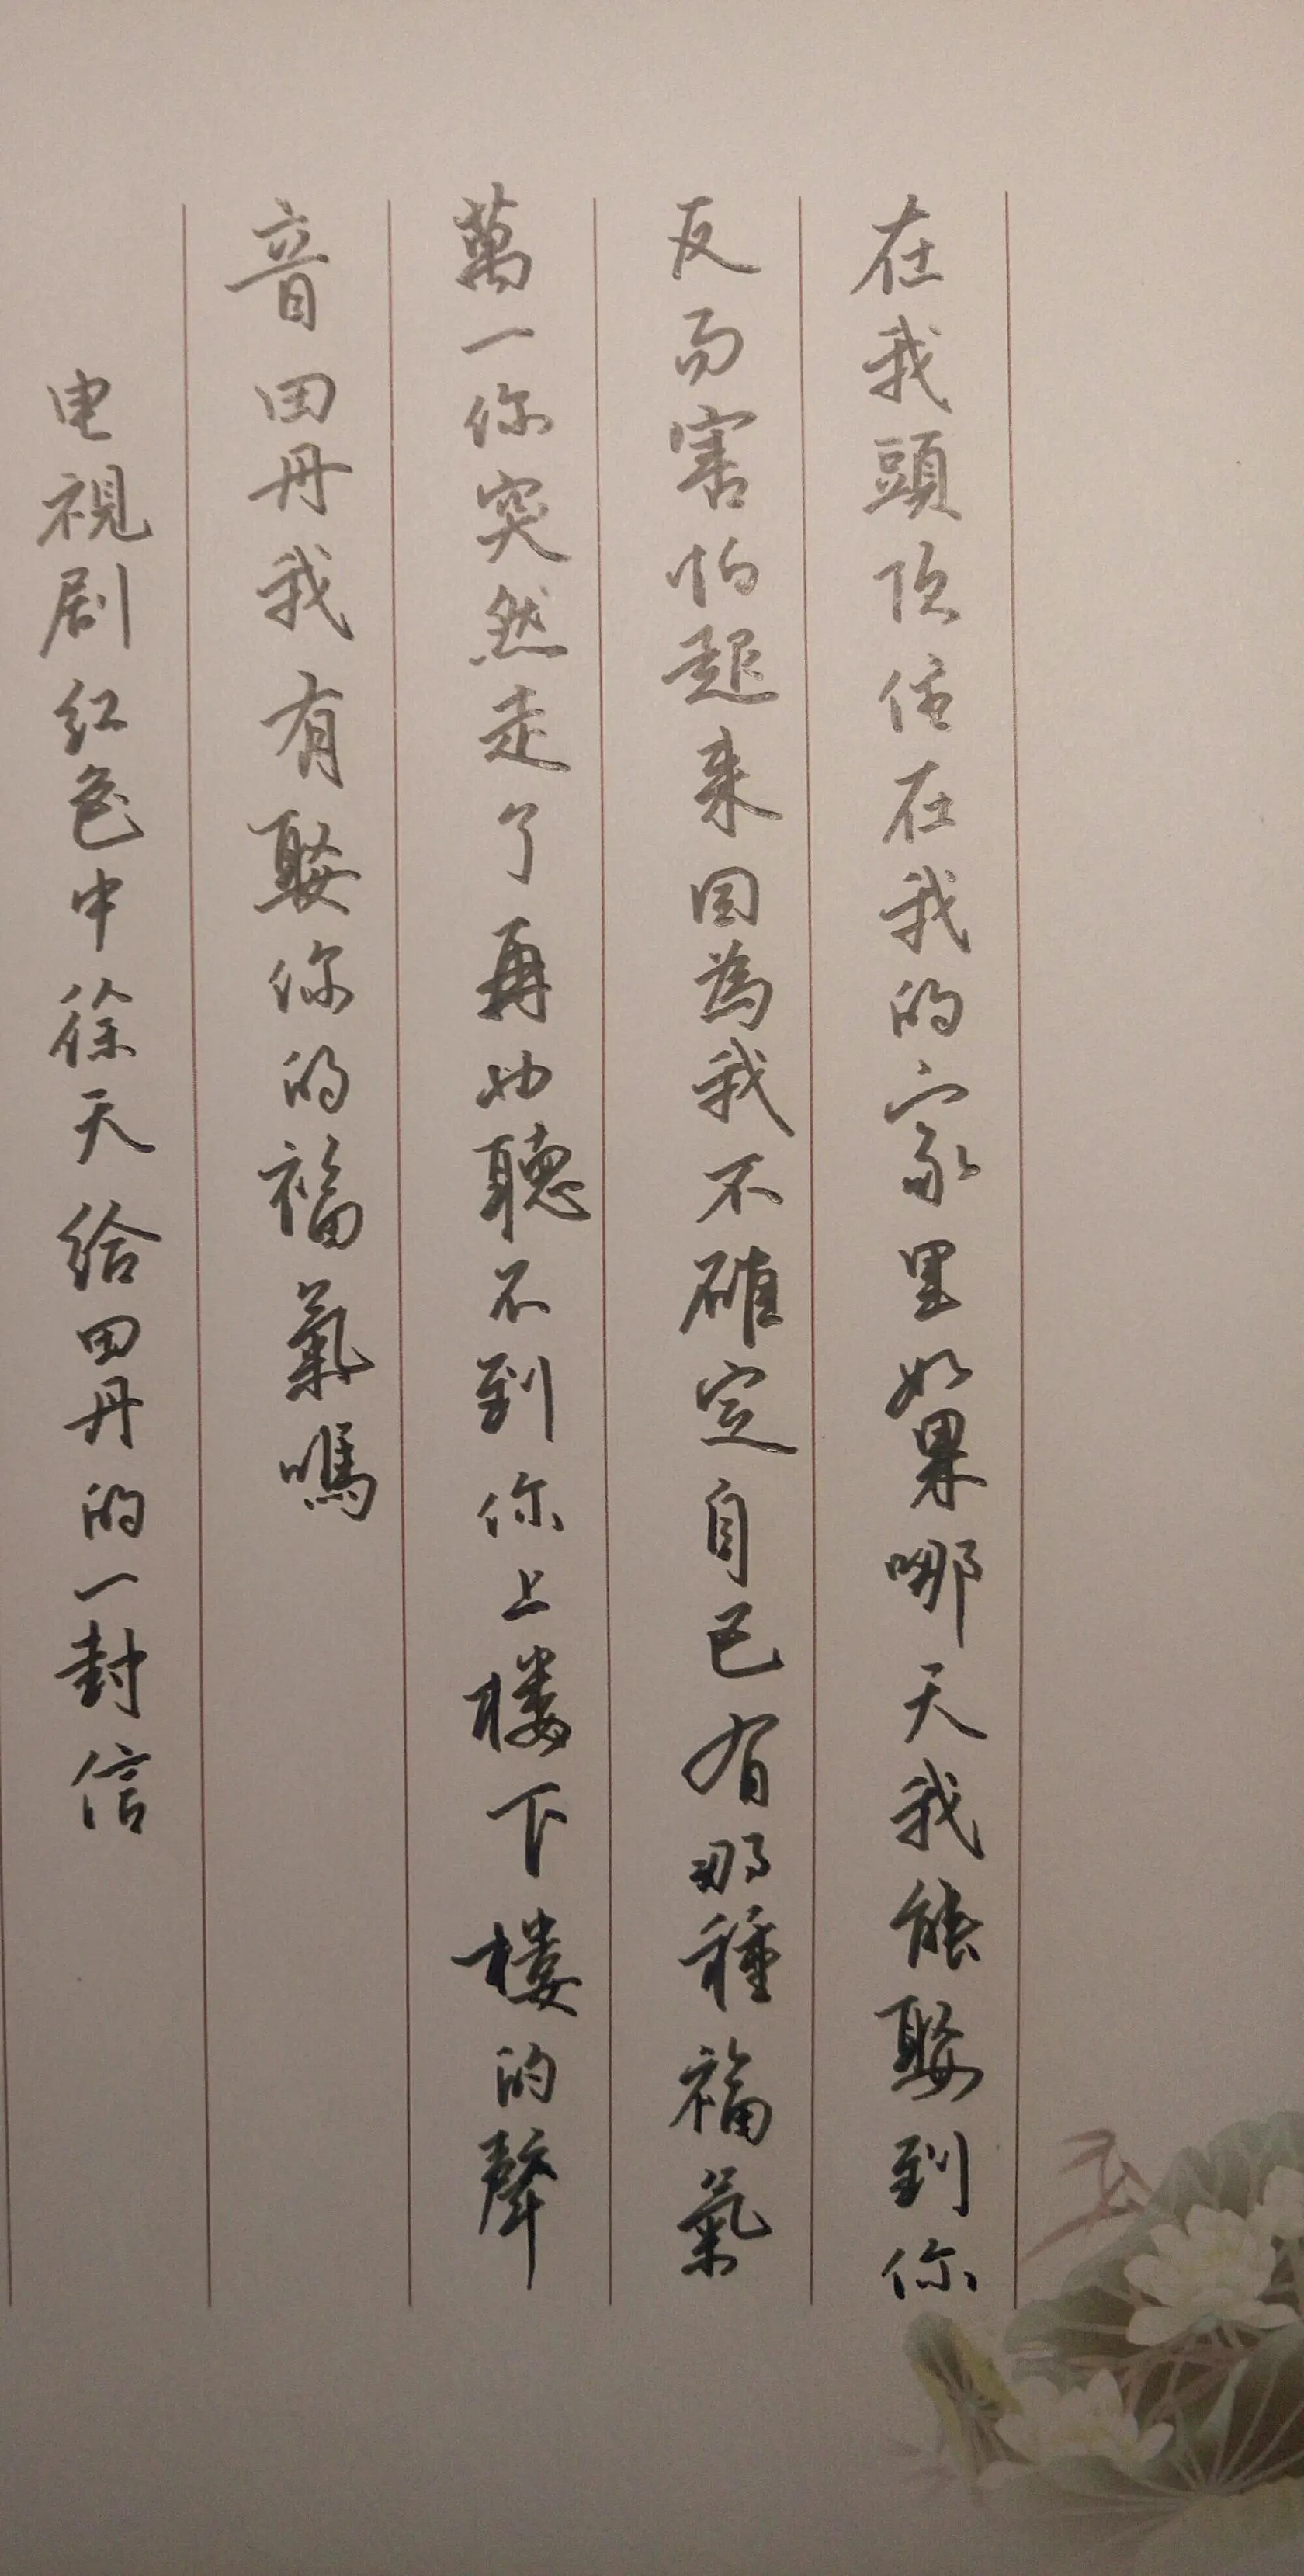 在我頭顶住在我的家里如果哪天我能娶到你
反而害怕起来因為我不確定自己有那種福氣
萬一你突然走了再也聽不到你上楼下楼的聲
音田丹我有娶你的福氣嗎
电視剧红色中徐天给田丹的一封信